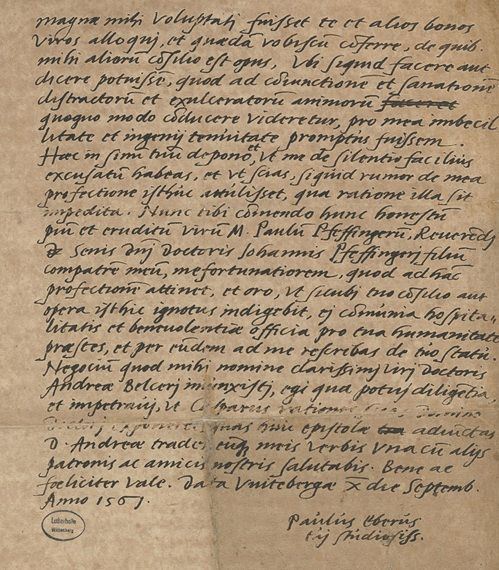 magnæ mihi voluptati fuisset te et alios bonos
viros alloqui, et quædā vobiscū cōferre, de quib.
mihi aliorū cōsilio est opus, Vbi siquid facere aut
dicere potuissē, quod ad cōiunctionē et sanationē
distractorū et exulceratorū animorū faceret
quoquo modo cōducere videretur, pro mea imbecil
litate et ingenij tenuitate promptus fuissem.
Hæc in sinū tuū depono, et vt me de silentio facilius
excusatū habeas, et vt scias, siquid rumor de mea
profectione isthuc attulisset, qua ratione illa sit
impedita. Nunc tibi cōmendo hunc honestū
piū et eruditū virū M. Paulū Pfeffingerū, Reuerēdi
D. Senis Dn̄i Doctoris Johannis Pfeffingeri filiū
compatrē meū, me fortunatiorem, quod ad hāc
profectionē attinet, et oro, vt sicubi tuo cōsilio aut
opera isthic ignotus indigebit, ei cōmunia hospita-
litatis et beneuolentiæ officia pro tua humanitate
præstes, et per eūdem ad me rescribas de tuo statu.
Negociū quod mihi nomine clarissimi viri Doctoris
Andreæ iniunxisti, egi qua potui diligētia
et impetraui, vt
quas huic epistolæ adiūctas
D. Andreæ trades, eūq; meis verbis vna cū alijs
patronis ac amicis nostris salutabis. Bene ac
fœliciter vale. Data Vuitebergæ X die Septemb.
Anno 1561.
Paulus Eberus
tui studiosiss.
Lutherhalle
Wittenberg